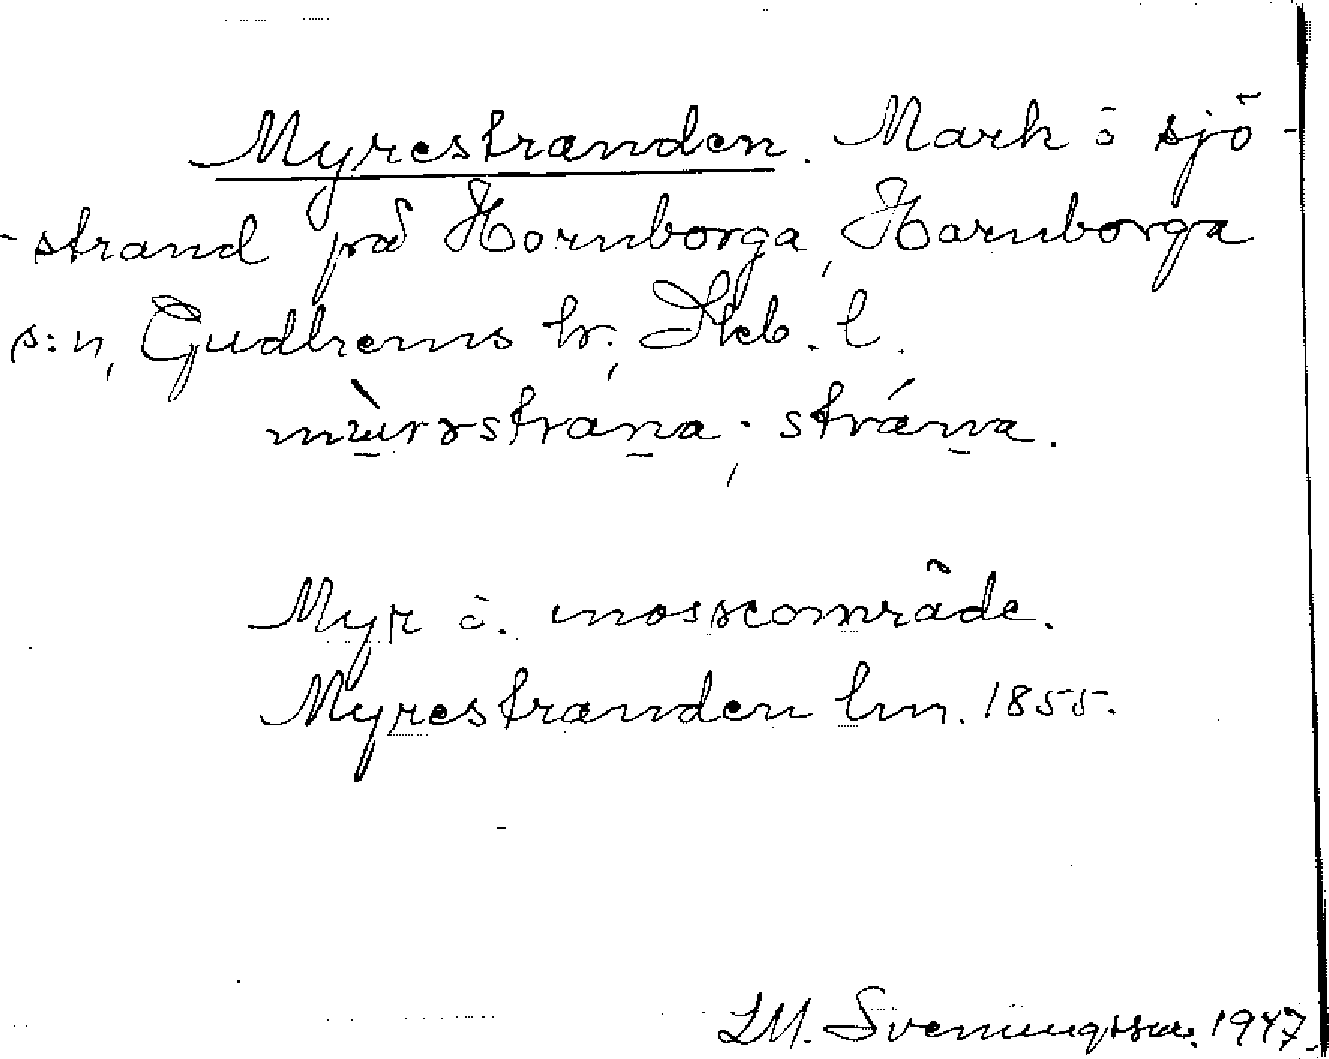 Myrestranden. Mark å sjö-
-strand på Hornborga, Hornborga
s:n, Gudhems hr, Skb. l.
mùrəstrána; strána.
Myr å. mosseområde.
Myrestranden lm. 1855.
LM. Svenungsson. 1947.